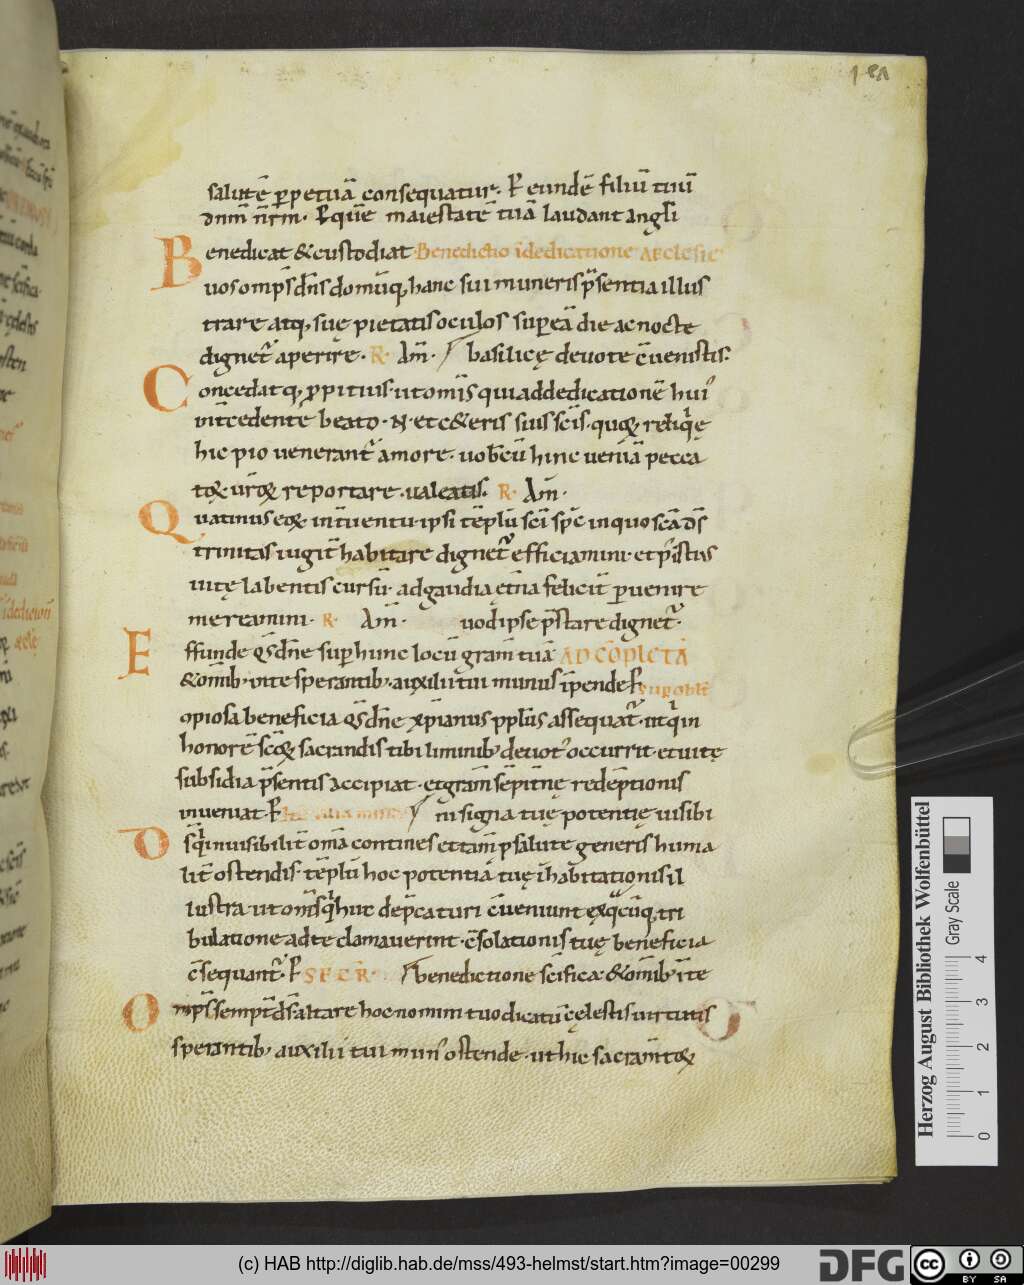 salutē ꝑpetuā consequatur. Ꝑ eundē filiū tuū
dnm̄ nr̄m. Ꝑ quē maiestatē tuā laudant angłi
Benedicat &custodiat Benedictio īdedicatione aecclesie
uos omp̄s dn̄s domūq; hanc sui muneris p̄sentia illus
trare atq; suę pietatis oculos sup eā die ac nocte
dignet̄ aperire. R. Am̄. basilicę deuote c̄uenistis.
Concedatq; ꝓpitius. ut om̄is qui ad dedicationē hui᾽
int̄cedente beato. N. et c&eris suis sc̄is. quoꝝ reliq̄ę
hic pio uenerant᾽ amore. uob̄cū hinc ueniā pecca
toꝝ ur̄oꝝ reportare. ualeatis. R. Am̄.
Quatinus eoꝝ int̄uentu. ipsi tēplū sc̄i sp̄c in quo sc̄a ds̄
trinitas iugit̄ habitare dignet᾽ efficiamini. et p᾽ istius
uitę labentis cursū. ad gaudia et̄na felicit̄ ꝑuenire
mereamini. R. Am̄. uod ipse p̄stare dignet᾽.
Effunde qs̄ dn̄e sup hunc locū gram̄ tuā AD CŌPLETĀ
&omīb; in te sperantib; auxiliū tui munus īpende Ꝑ
opiosa beneficia qs̄ dn̄e xp̄ianus ppl̄us assequat᾽. ut qui in
honorē sc̄oꝝ sacrandis tibi liminib; deuot᾽ occurrit. et uitę
subsidia p̄sentis accipiat. et gram̄ sēpit̄nę redēptionis
inueniat Ꝑ ni signa tuę potentię uisibi
D s̄ qui inuisibilit̄ omā contines et tam̄ p salute generis huma
lit̄ ostendis. tēplū hoc potentiā tuę īhabitationis il
lustra. ut om̄s qui huc dep̄caturi c̄ueniunt ex q̄cūq; tri
bulatione ad te clamauerint. c̄solationis tuę beneficia
c̄sequant᾽. Ꝑ SECR. benedictione sc̄ifica. &omīb; īte
Omp̄s semp̄t ds̄ altare hoc nomini tuo dicatū cęlestis uirtutis
sperantib; auxilii tui mun᾽ ostende. ut hic sacram̄toꝝ
Herzog August Bibliothek Wolfenbüttel
Gray Scale
0 1 2 3 4
(c) HAB http://diglib.hab.de/mss/493-helmst/start.htm?image=00299
DFG
cc BY SA